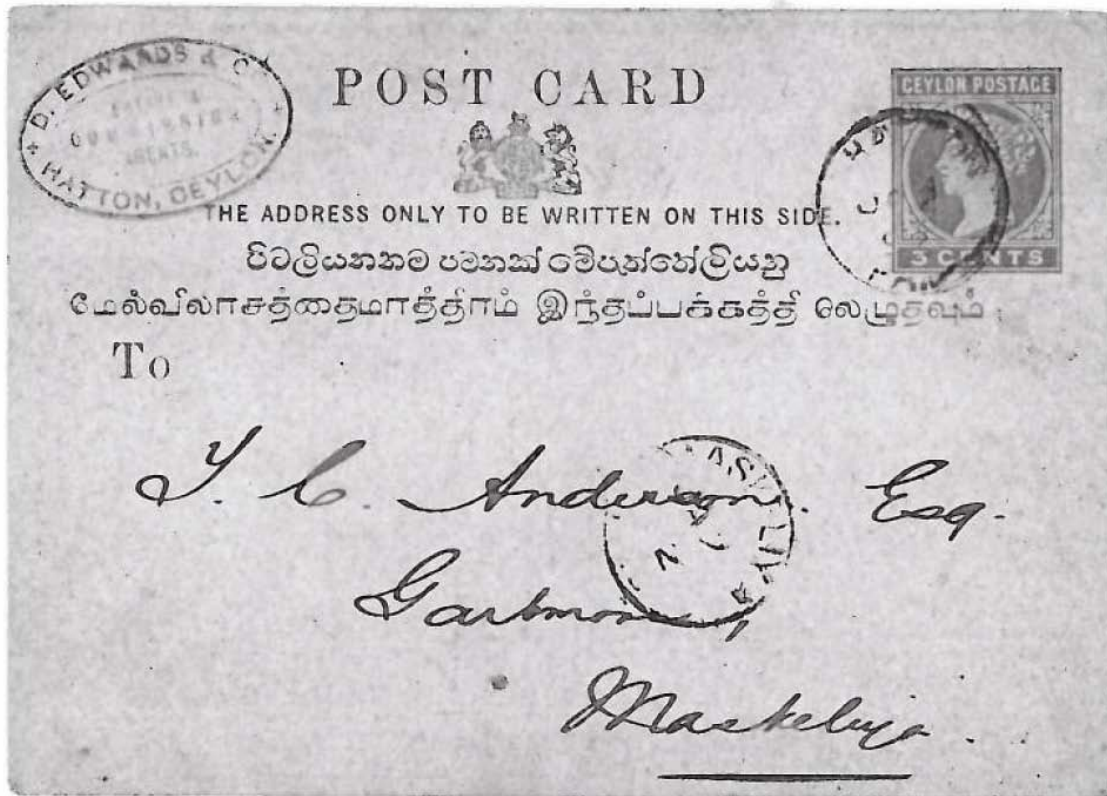 D. EDWARDS & Co
AGENTS.
HATTON, CEYLON.
POST CARD
CEYLON POSTAGE
3 CENTS
THE ADDRESS ONLY TO BE WRITTEN ON THIS SIDE.
විටලියනතම පමනක් මේපැත්තේලියනු
மேல்விலாசத்தைமாத்திரம் இந்தப்பக்கத்தி லெழுதவும்
To
Anderson. Esq.
Gartmore,
Maskeliya.